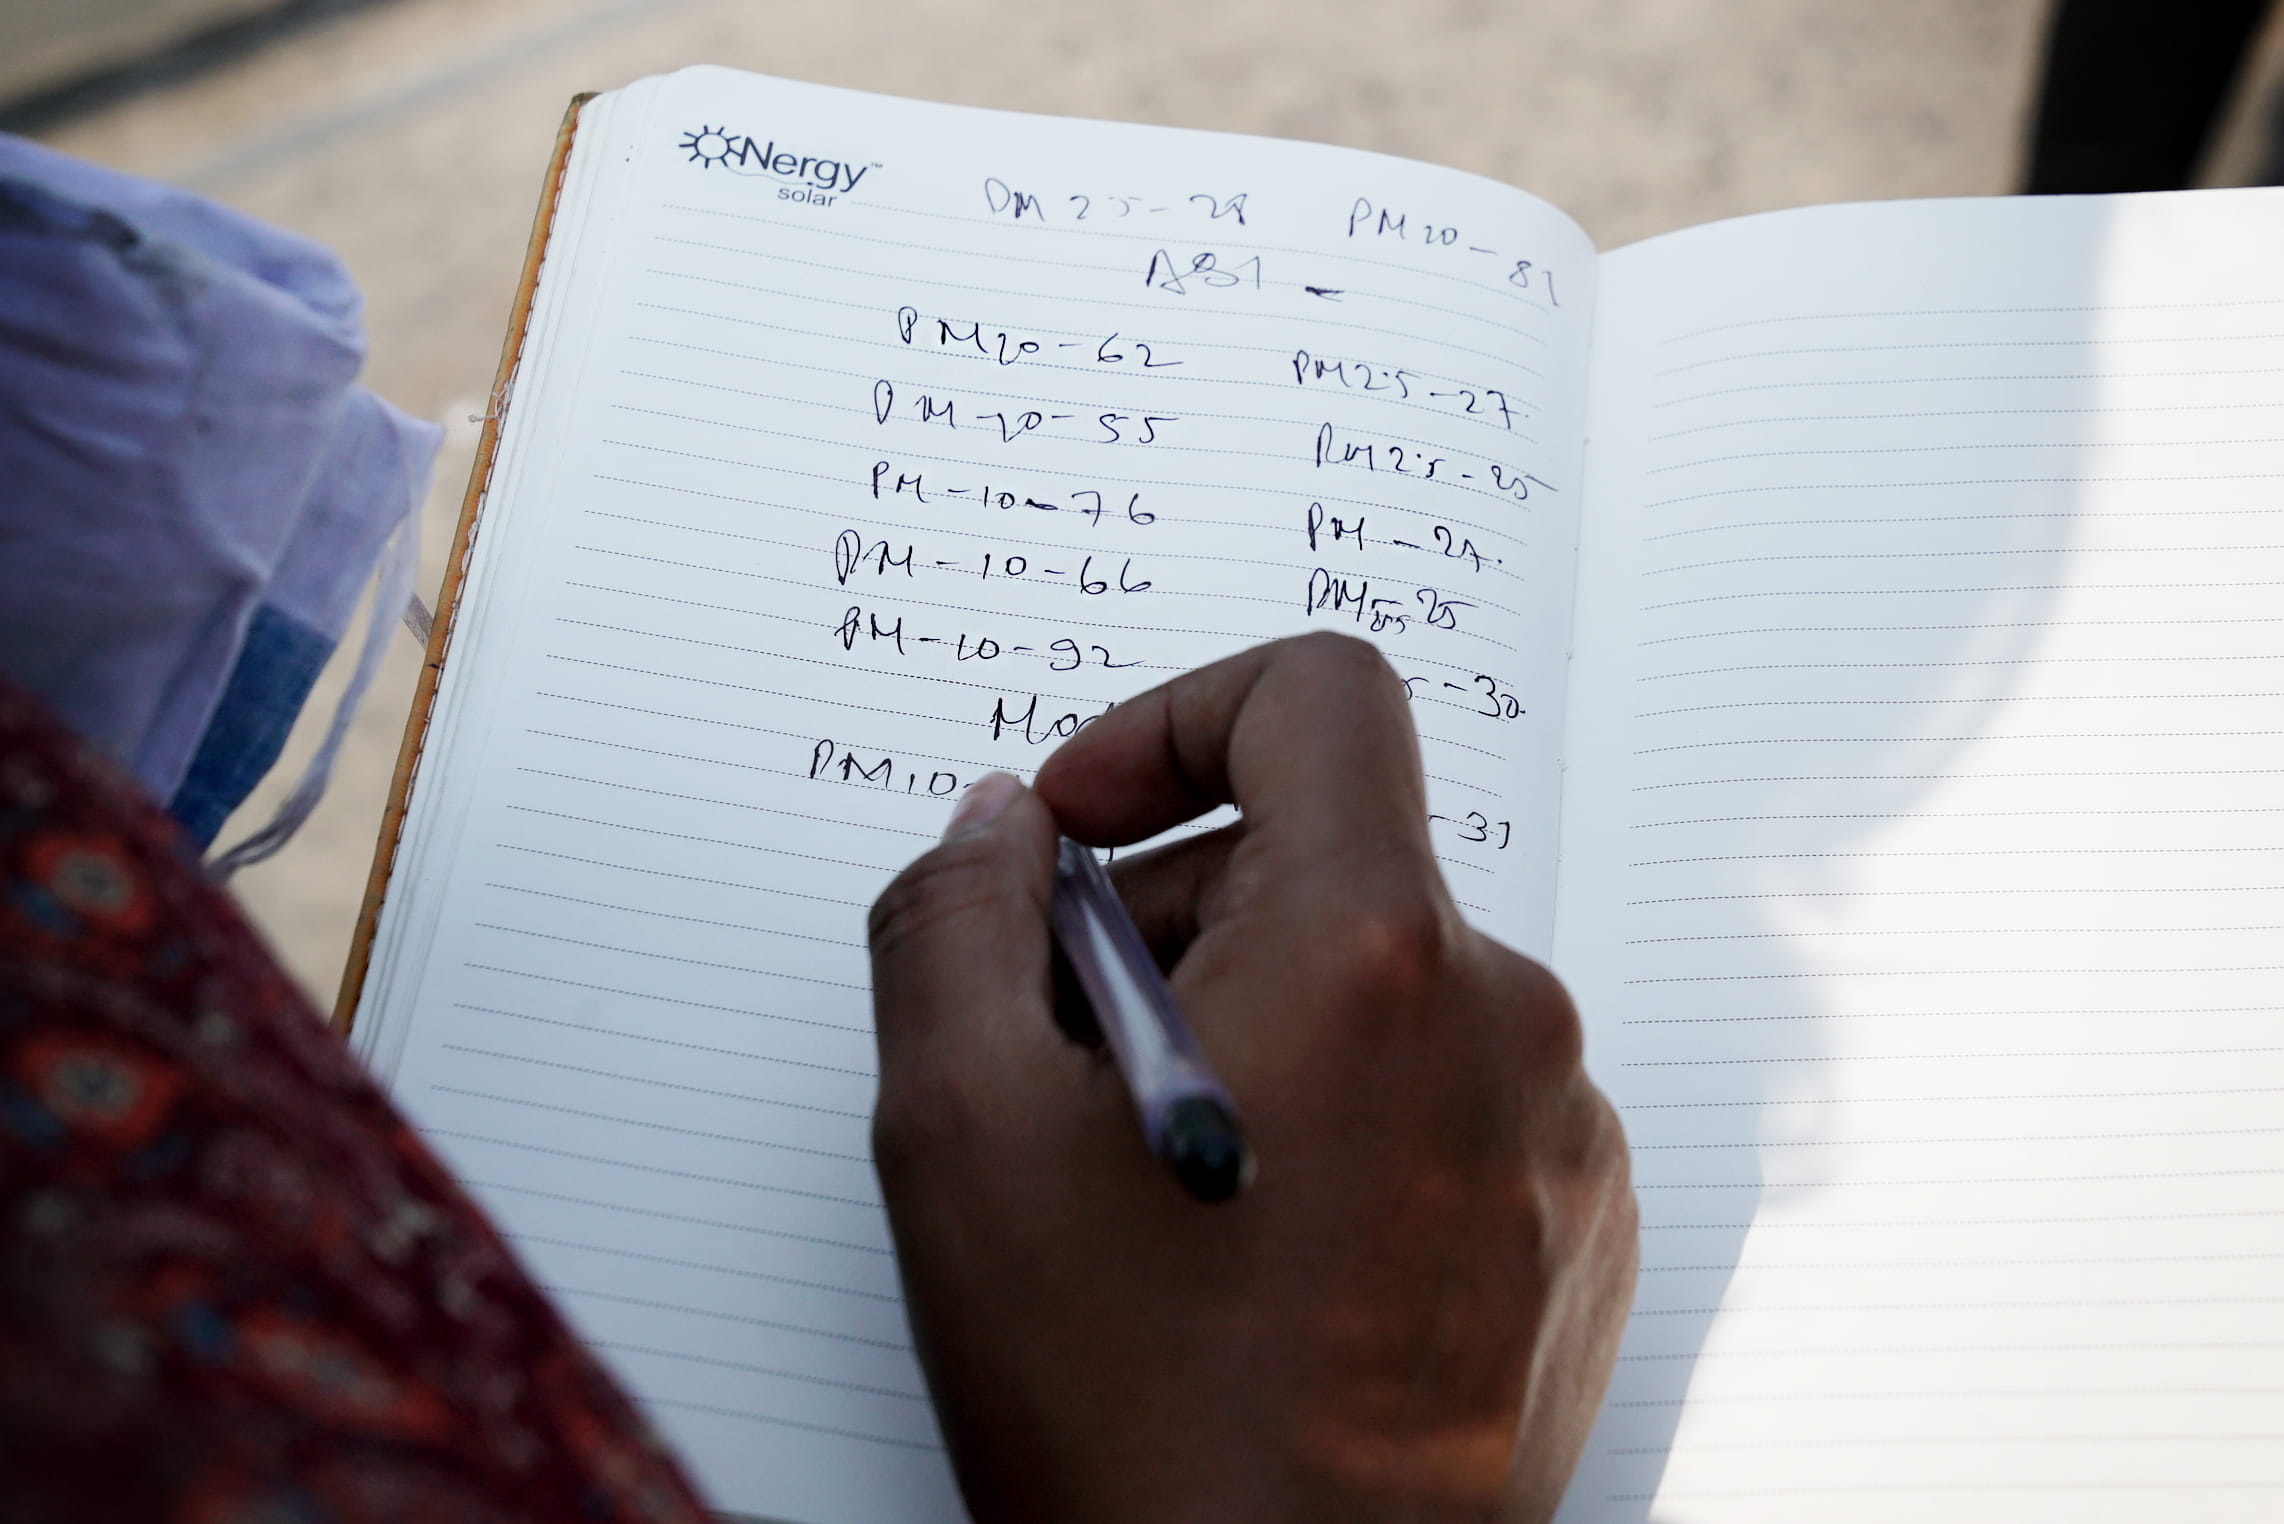 ONergy™
solar
PM 25-28 PM 20-81
PM20-62 PM2.5-27.
PM-20-55 PM2.5-25
PM-10-76 PM-27.
PM-10-66 PM 25
PM-10-92 5-30.
PM10- -31